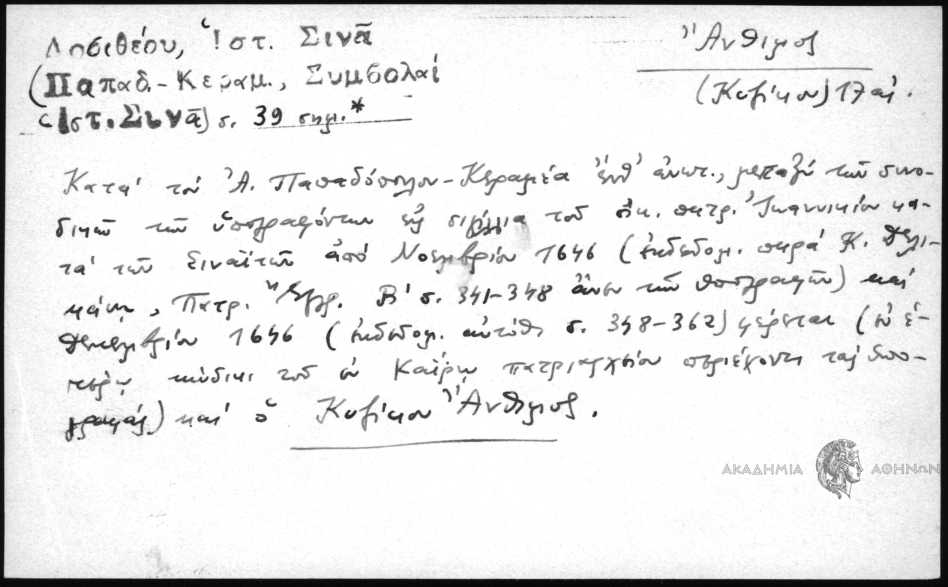 Δοσιθέου, Ἱστ. Σινᾶ
(Παπαδ.-Κεραμ., Συμβολαί
Ἱστ. Σινᾶ) σ. 39 σημ.*
Ἄνθιμος
(Κυζίκου) 17 αἰ.
Κατά τόν Ἀ. Παπαδόπουλον-Κεραμέα ἔνθ' ἀνωτ., μεταξύ τῶν συνο-
δικῶν τῶν ὑπογραφόντων εἰς σιγίλλια τοῦ οἰκ. πατρ. Ἰωαννικίου κα-
τά τῶν Σιναϊτῶν ἀπό Νοεμβρίου 1646 (ἐκδεδομ. παρά Κ. Δελι-
κάνῃ, Πατρ. Ἔγγρ. Β' σ. 341-348 ἄνευ τῶν ὑπογραφῶν) καί
Δεκεμβρίου 1646 (ἐκδεδομ. αὐτόθι σ. 348-362) φέρεται (ἐν ἑ-
τέρῳ κώδικι τοῦ ἐν Καΐρῳ πατριαρχείου περιέχοντι τάς ὑπο-
γραφάς) καί ὁ Κυζίκου Ἄνθιμος.
ΑΚΑΔΗΜΙΑ ΑΘΗΝΩΝ